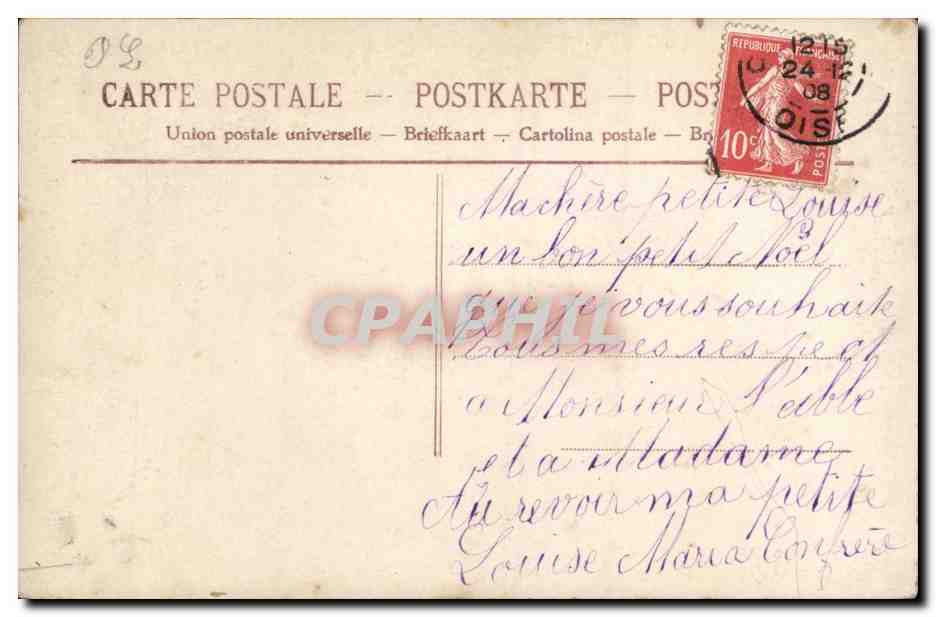 CARTE POSTALE — POSTKARTE — POS
Union postale universelle — Briefkaart — Cartolina postale — Br
REPUBLIQUE FRANÇAISE
10c
POST
12 15
24 - 12
08
OISE
Machère petite Louise
un bon petit Noël
que je vous souhaite
Tous mes respect
a Monsieur l'abbe
et a Madame
Au revoir ma petite
Louise Maria
CPAPHIL